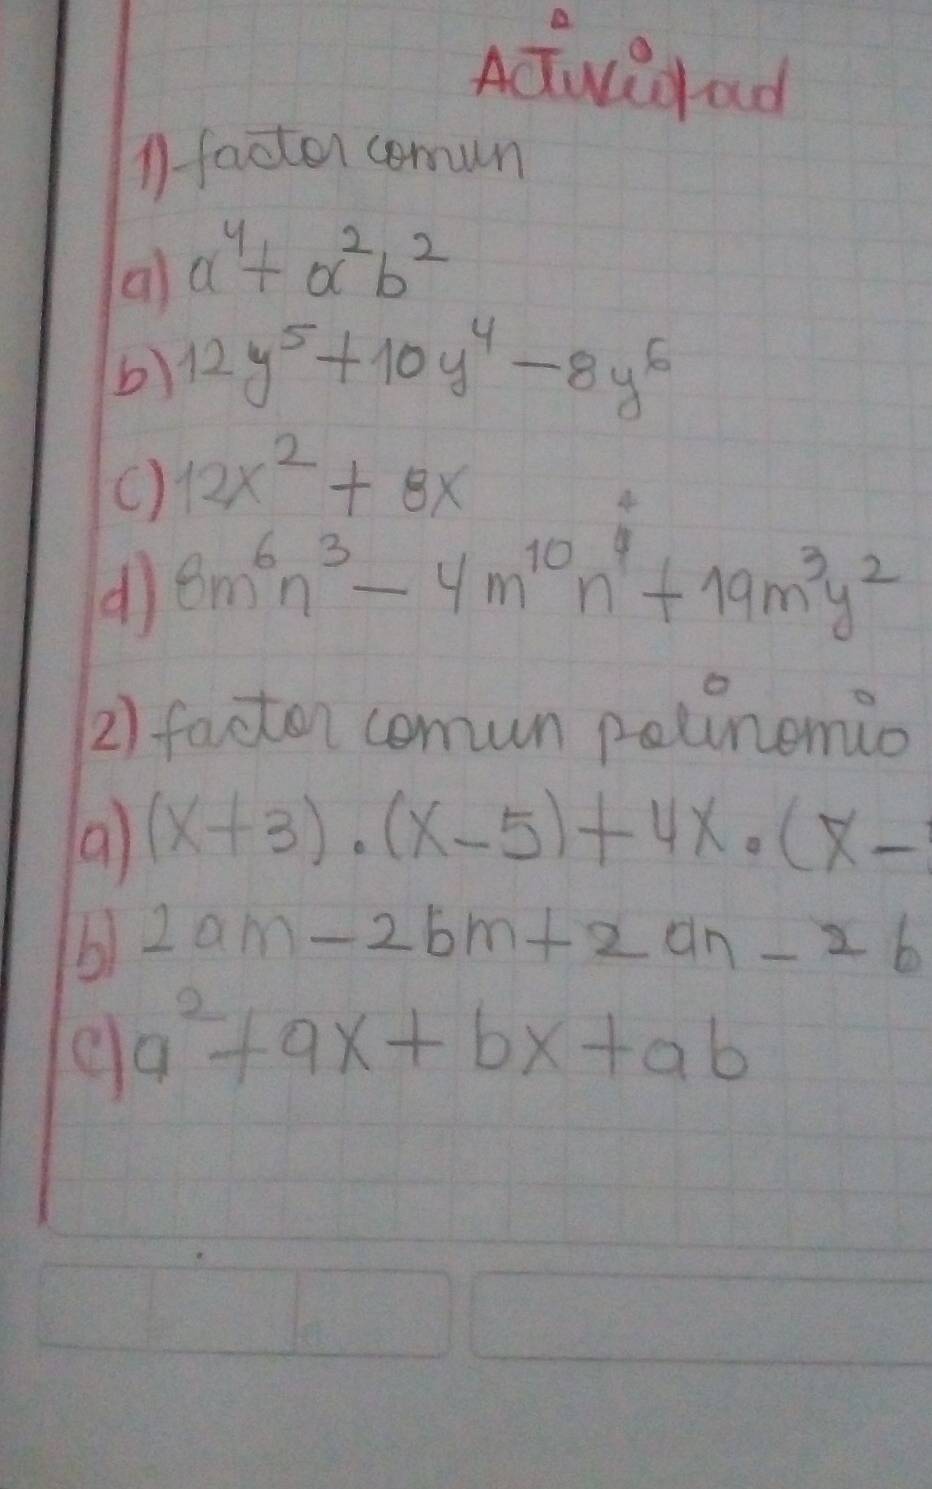 Actividad
1) factor comun
a) a⁴ + a²b²
b) 12y⁵ + 10y⁴ - 8y⁶
c) 12x² + 8x
d) 8m⁶n³ - 4m¹⁰n + 19m³y²
2) factor comun polinomio
a) (x+3).(x-5)+4x.(x-
b) 2am-2bm+2an-2b
c) a²+ax+bx+ab